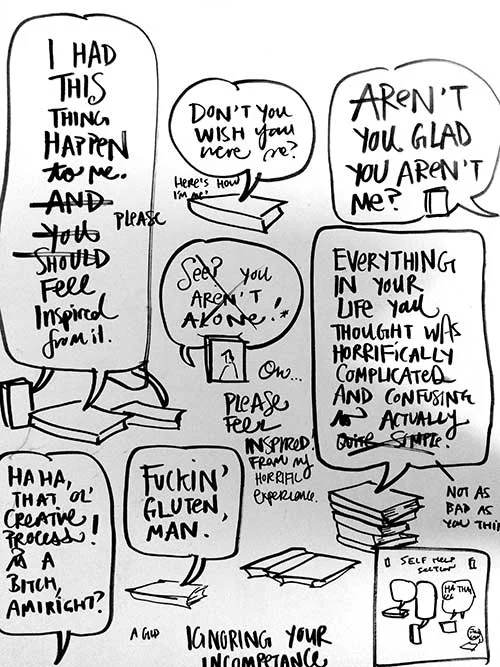 I HAD
THIS
THING
HAPPEN
to me.
AND
YOU
PLEASE
SHOULD
FEEL
INSPIRED
from it.
DON'T YOU
WISH YOU
WERE ME?
HERE'S HOW
I'M ME!
AREN'T
YOU GLAD
YOU AREN'T
ME?
SEE? YOU
AREN'T
ALONE!*
OW...
PLEASE
FEEL
INSPIRED!
FROM MY
HORRIFIC
experience.
EVERYTHING
IN YOUR
LIFE YOU
THOUGHT WAS
HORRIFICALLY
COMPLICATED
AND CONFUSING
IS ACTUALLY
QUITE SIMPLE.
NOT AS
BAD AS
YOU THIN
HA HA,
THAT OL'
CREATIVE
PROCESS!
IS A
BITCH,
AMIRIGHT?
FUCKIN'
GLUTEN,
MAN.
SELF HELP
SECTION
A
IGNORING YOUR
INCOMPETANCE